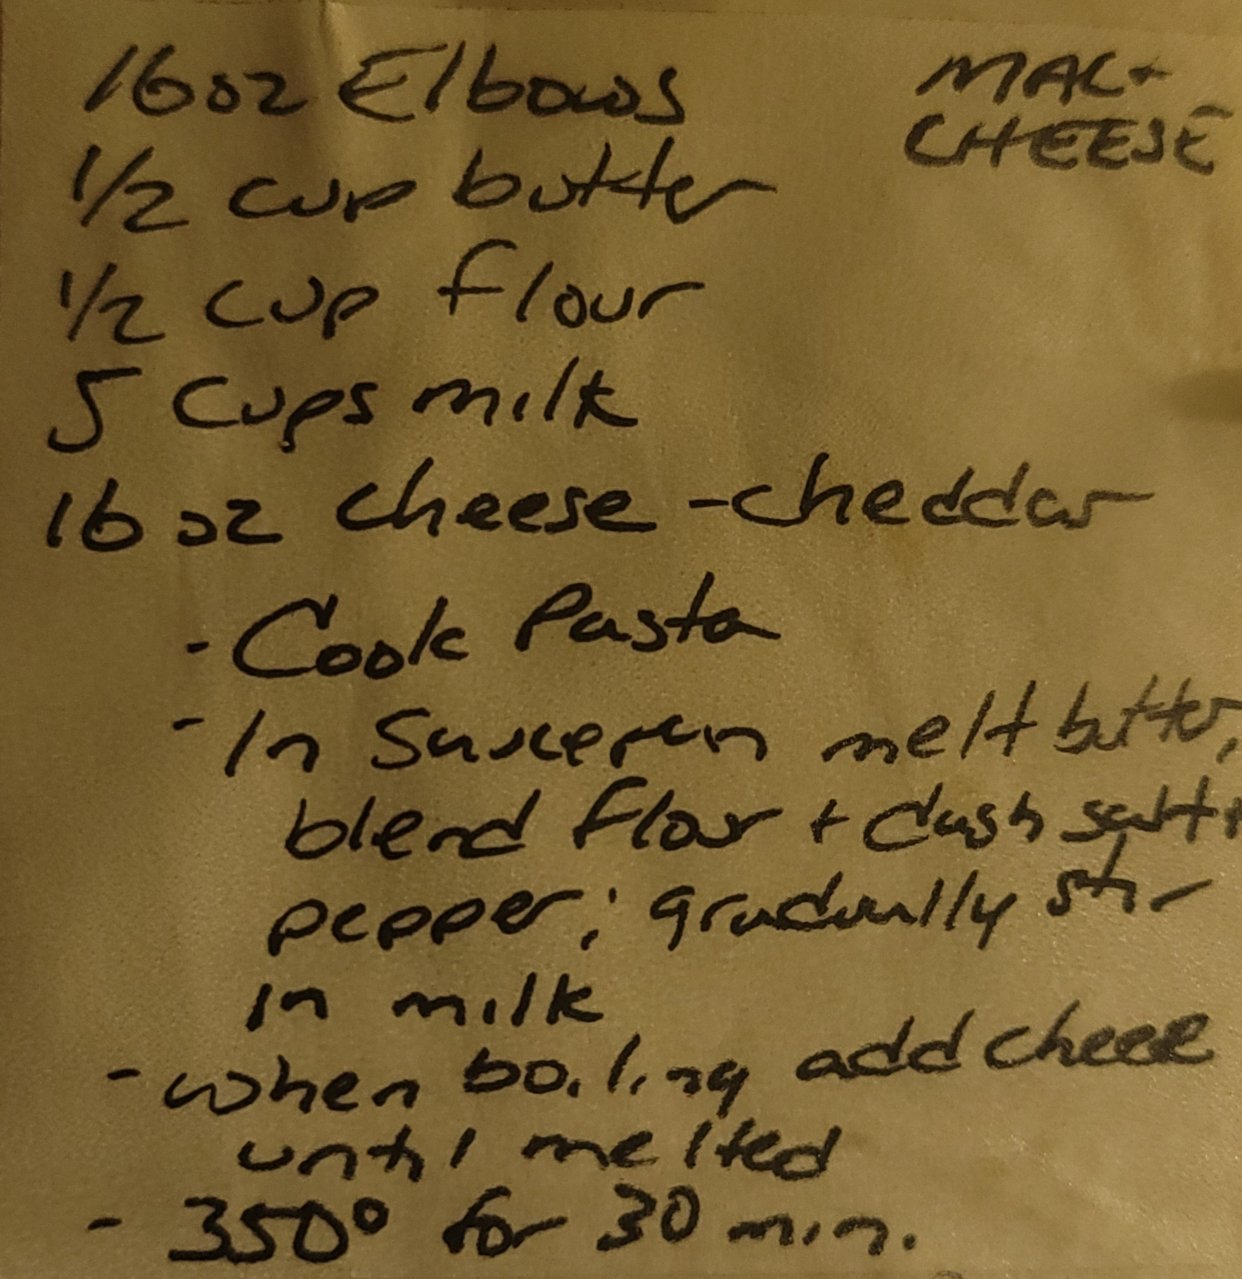 MAC +
CHEESE
16 oz Elbows
1/2 cup butter
1/2 cup flour
5 cups milk
16 oz cheese - cheddar
- Cook Pasta
- In Saucepan melt butter,
blend flour + dash salt +
pepper; gradually stir
in milk
- when boiling add cheese
until melted
- 350° for 30 min.